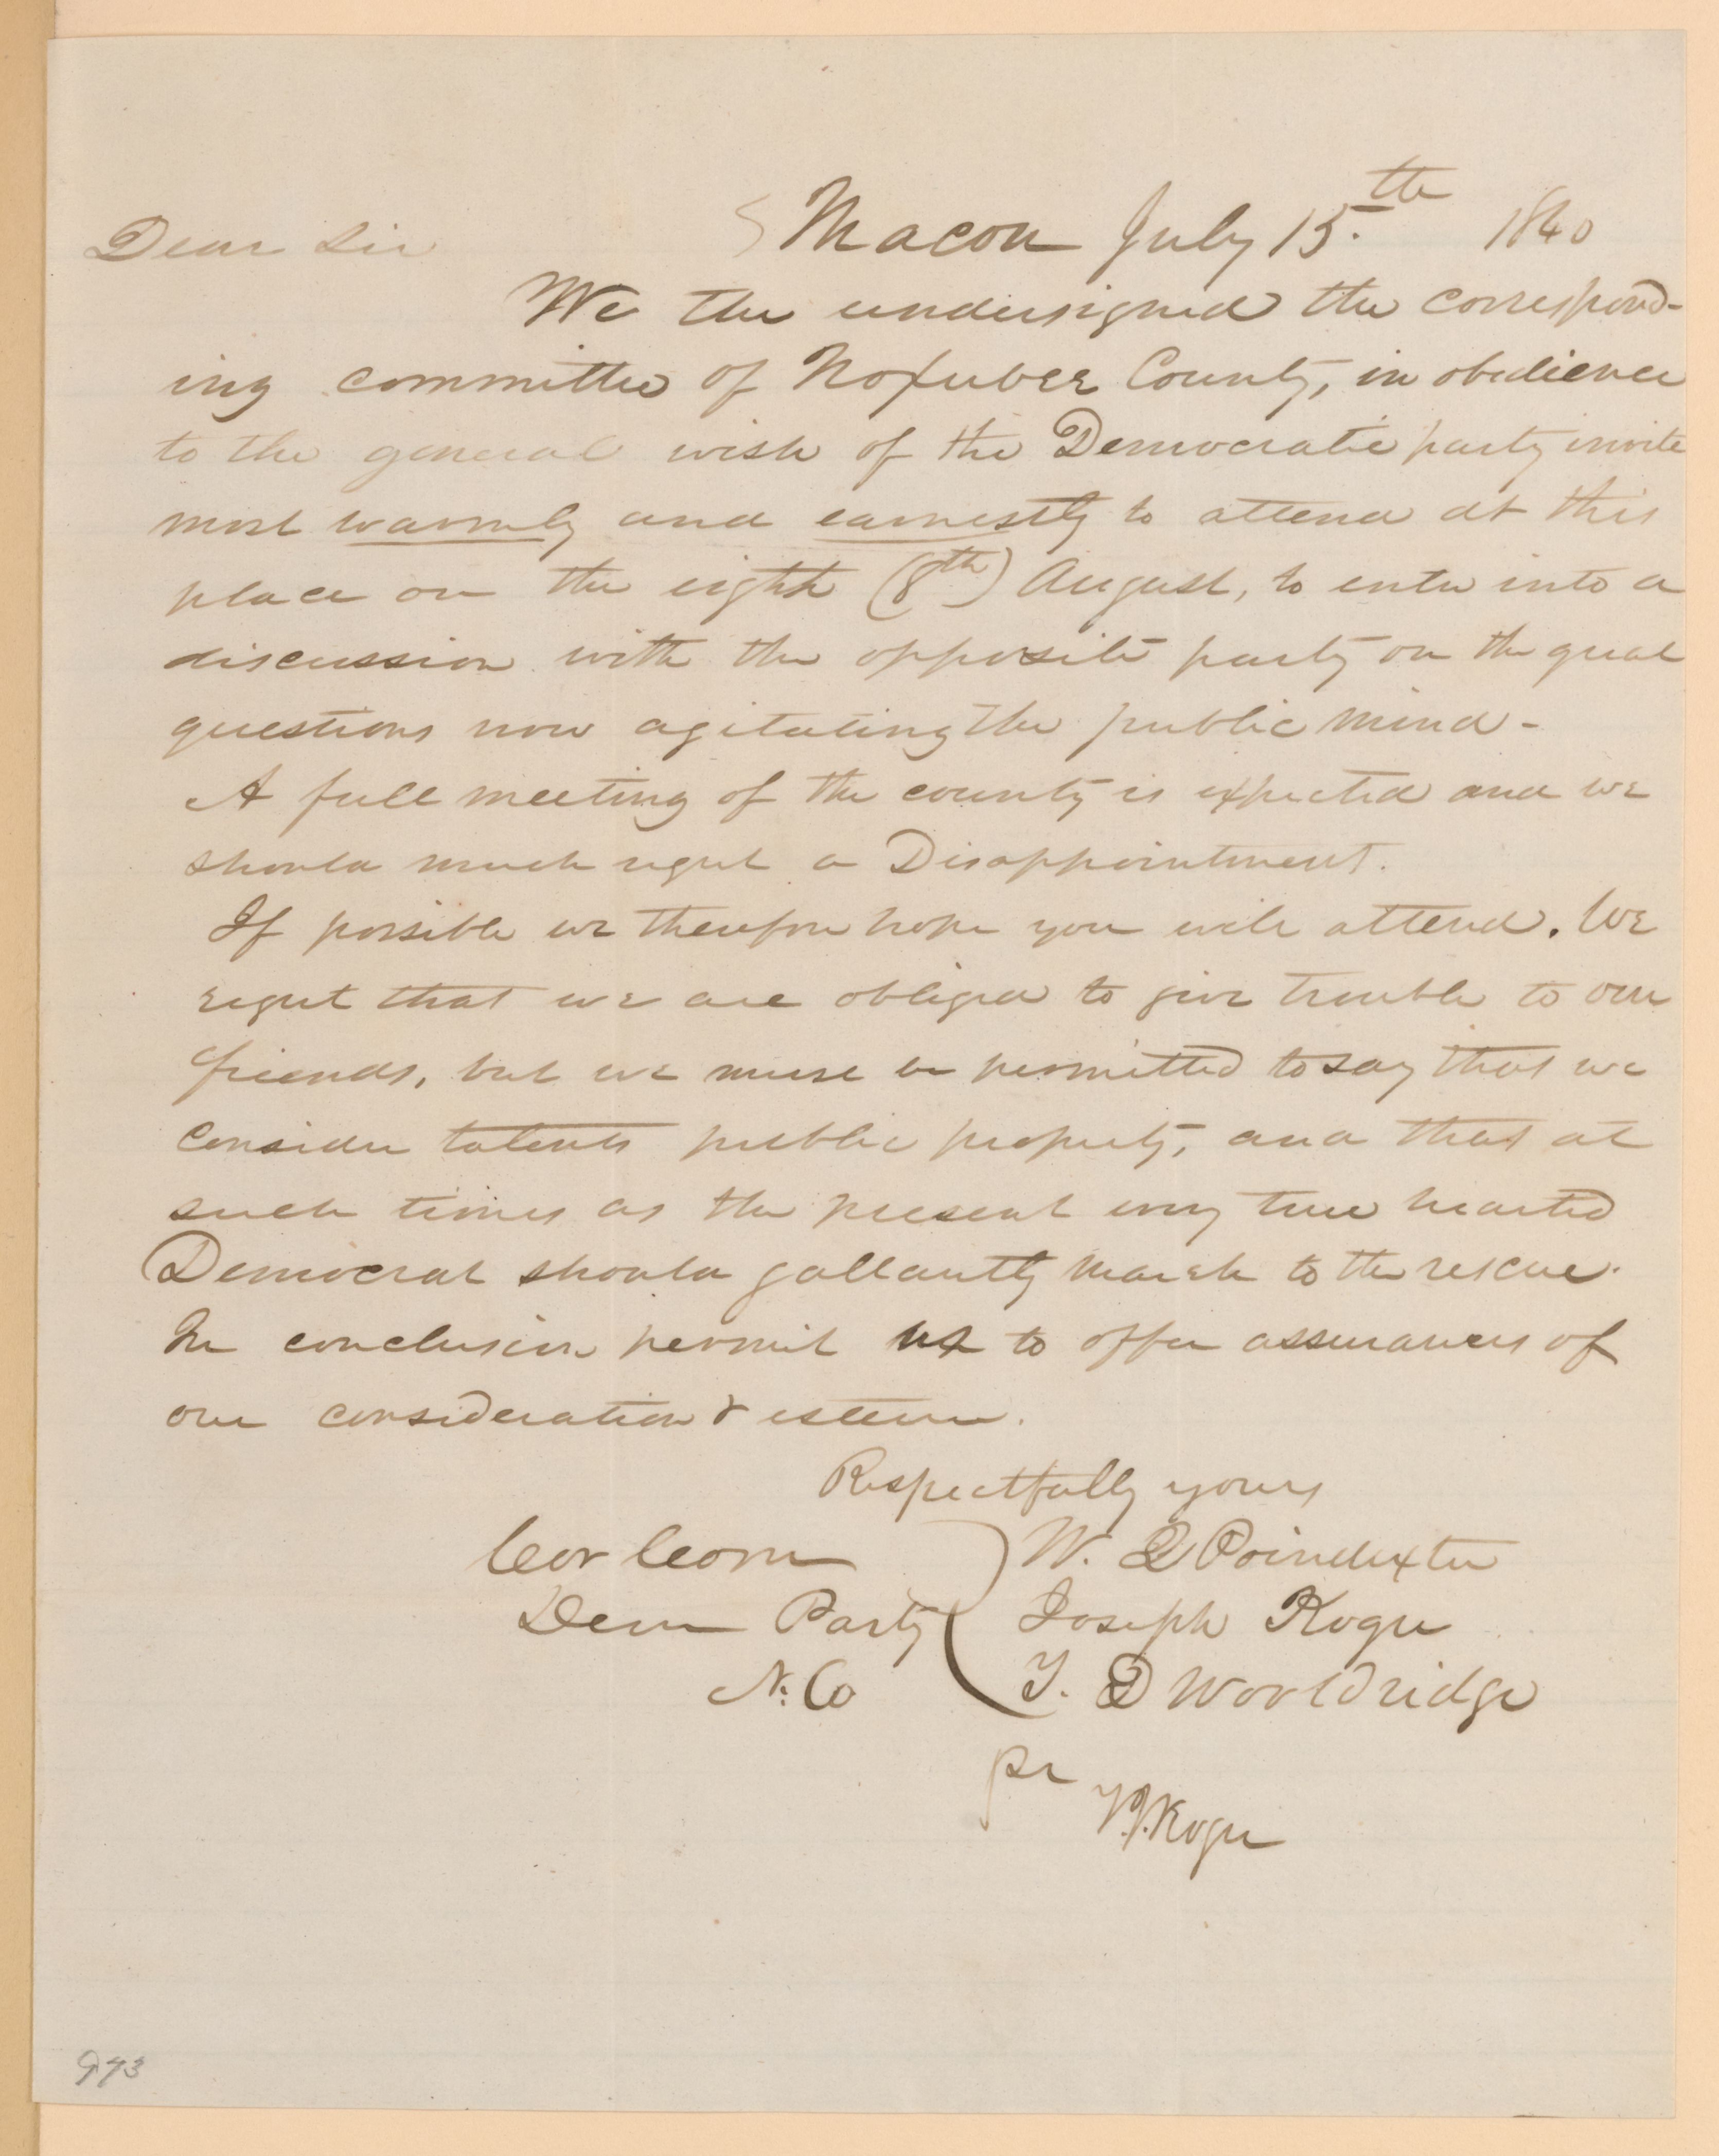 Macon July 15.th 1840
Dear Sir
We the undersigned the correspond-
ing committee of Noxubee County, in obedience
to the general wish of the Democratic party invite
most warmly and earnestly to attend at this
place on the eighth (8th) August, to enter into a
discussion with the opposite party on the great
questions now agitating the public mind -
A full meeting of the county is expected and we
should much regret a Disappointment.
If possible we therefore hope you will attend. We
regret that we are obliged to give trouble to our
friends, but we must be permitted to say that we
consider talents public property, and that at
such times as the present every true hearted
Democrat should gallantly march to the rescue.
In conclusion permit us to offer assurances of
our consideration & esteem.
Respectfully yours
Cor Com W. Q Poindexter
Dem Party Joseph Koger
N. Co T. D Wooldridge
pr T. J. Koger
993